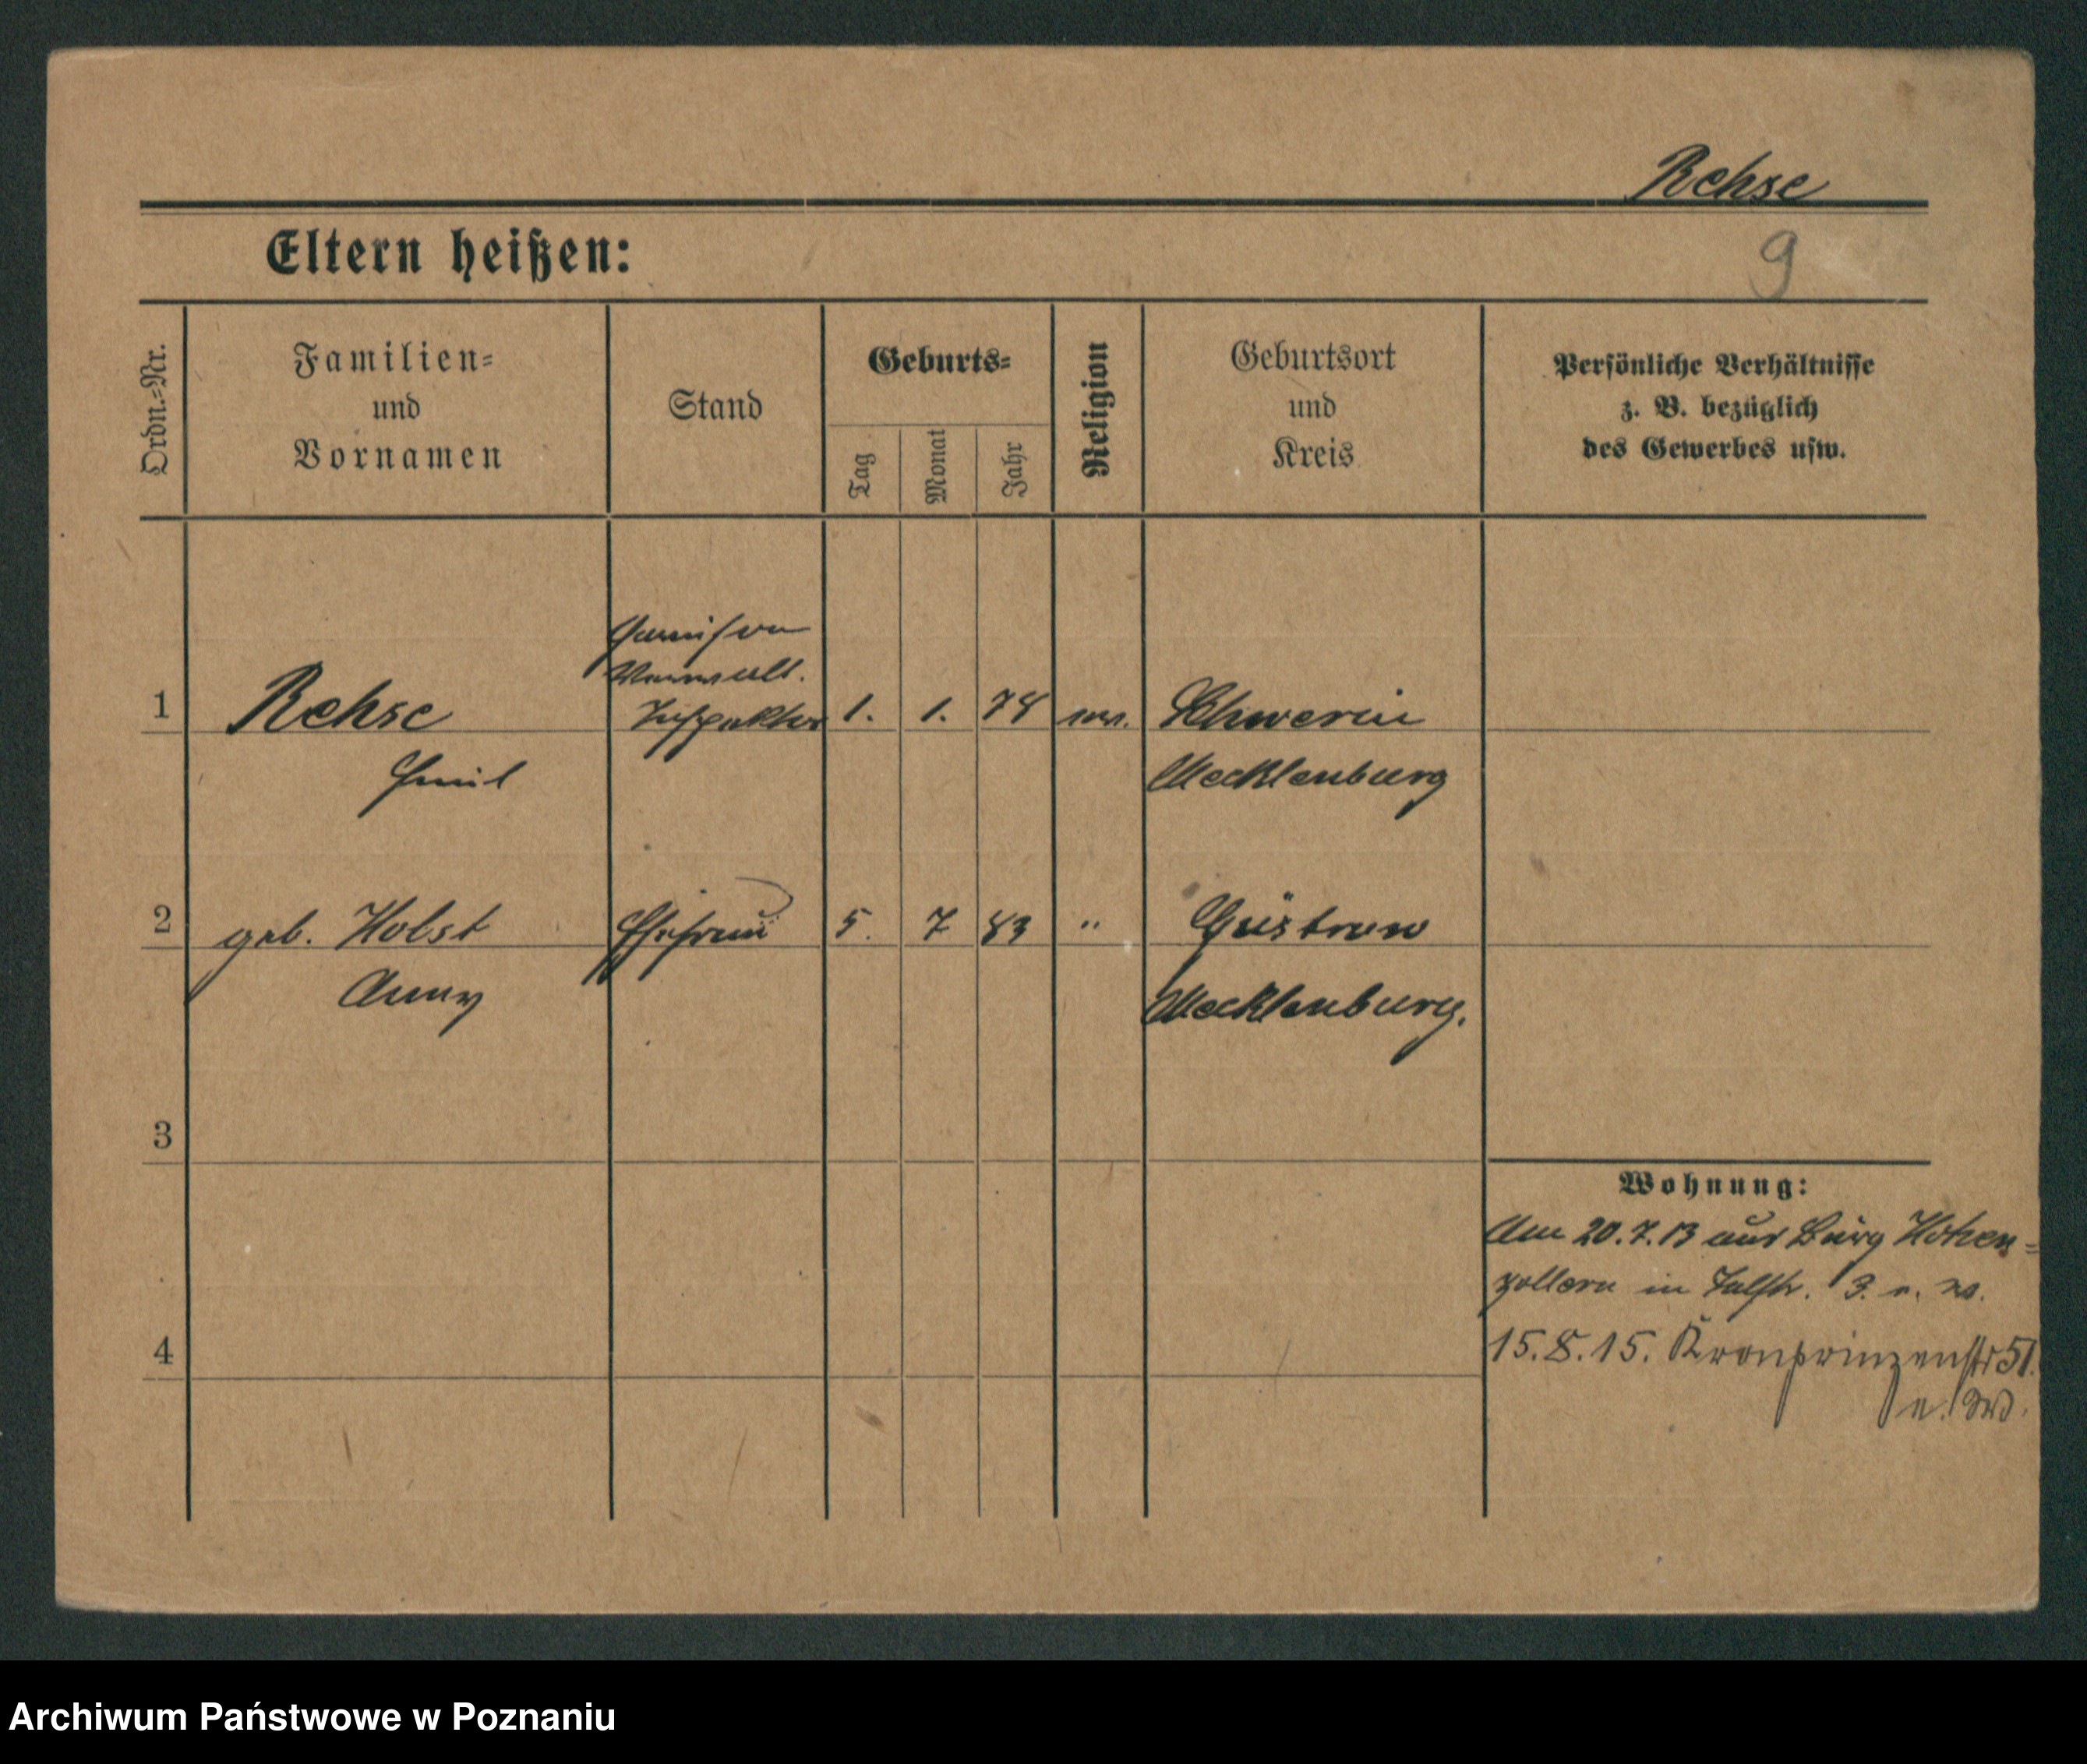 Rehse
Eltern heißen:
9
Ordn.-Nr.
Familien-
und
Vornamen
Stand
Geburts-
Tag
Monat
Jahr
Religion
Geburtsort
und
Kreis
Persönliche Verhältnisse
z. B. bezüglich
des Gewerbes usw.
1
Rehse
Emil
Garnison
Verwalt.
Inspektor
1.
1.
74
ev.
Schwerin
Mecklenburg
2
geb. Holst
Anny
Ehefrau
5.
7
83
"
Güstrow
Mecklenburg.
3
4
Wohnung:
Am 20.7.13 aus Burg Hohen-
zollern in Talstr. 3. n. W.
15.8.15. Kronprinzenstr 51.
n. W.
Archiwum Państwowe w Poznaniu